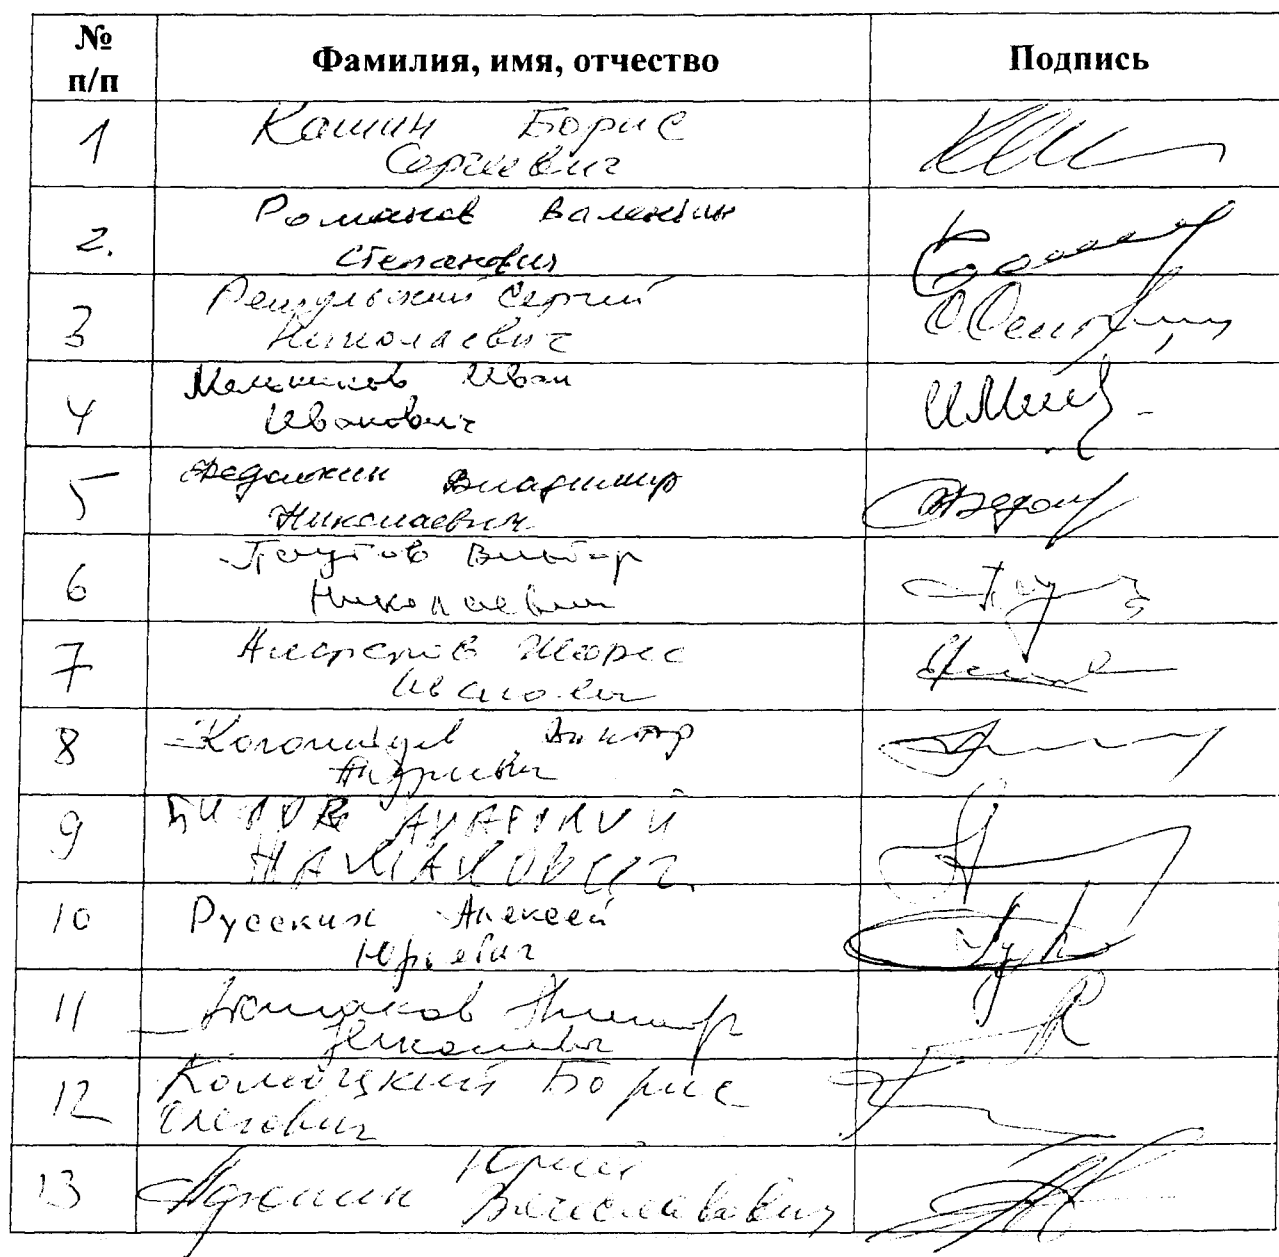 № п/п Фамилия, имя, отчество Подпись
1 Кашин Борис
Сергеевич
2. Романов Валентин
Степанович
3 Решульский Сергей
Николаевич
4 Мельников Иван
Иванович
5 Федоткин Владимир
Николаевич
6 Паутов Виктор
Николаевич
7 Алферов Жорес
Иванович
8 Коломейцев Виктор
Андреевич
9
10 Русских Алексей
Юрьевич
11
Николаевич
12 Комоцкий Борис
Олегович
13 Афонин Юрий
Вячеславович